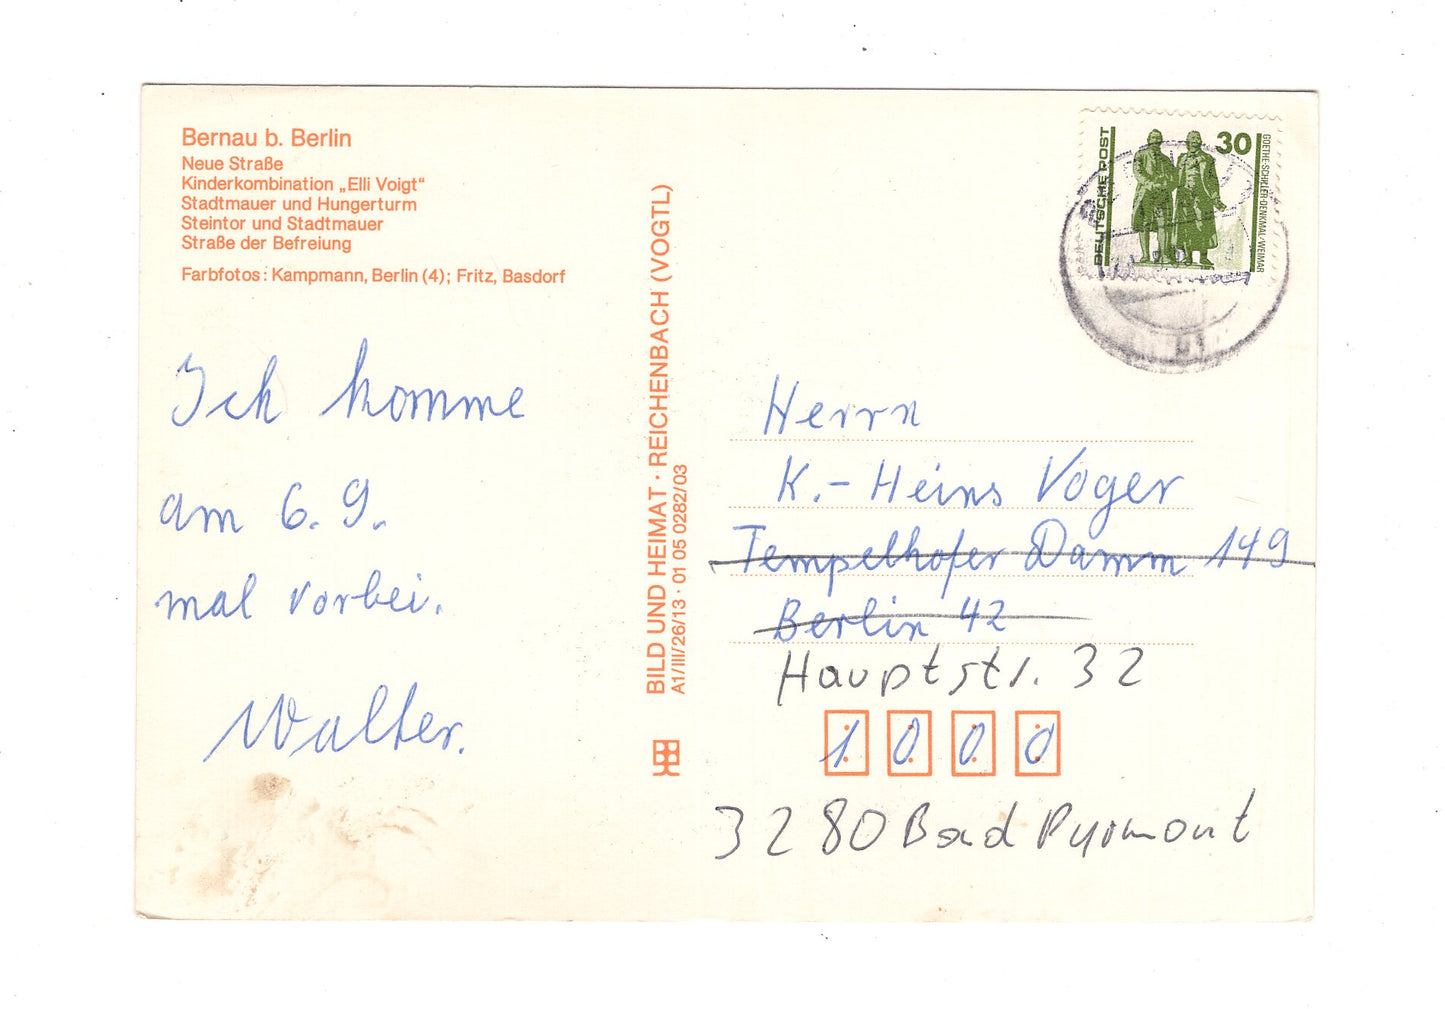 Bernau b. Berlin
Neue Straße
Kinderkombination „Elli Voigt“
Stadtmauer und Hungerturm
Steintor und Stadtmauer
Straße der Befreiung
Farbfotos: Kampmann, Berlin (4); Fritz, Basdorf
Ich komme
am 6. 9.
mal vorbei.
Walter.
BILD UND HEIMAT · REICHENBACH (VOGTL)
A1/III/26/13 · 01 05 0282/03
DEUTSCHE POST
30
GOETHE-SCHILLER-DENKMAL/WEIMAR
Herrn
K.- Heins Voger
Tempelhofer Damm 149
Berlin 42
Hauptstr. 32
1000
3280 Bad Pyrmont